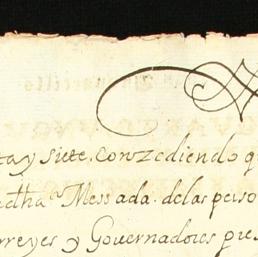 ta y siete. Conzediendo q
dtha ͣ Messada. de las perso
rreyes y Governadores pre